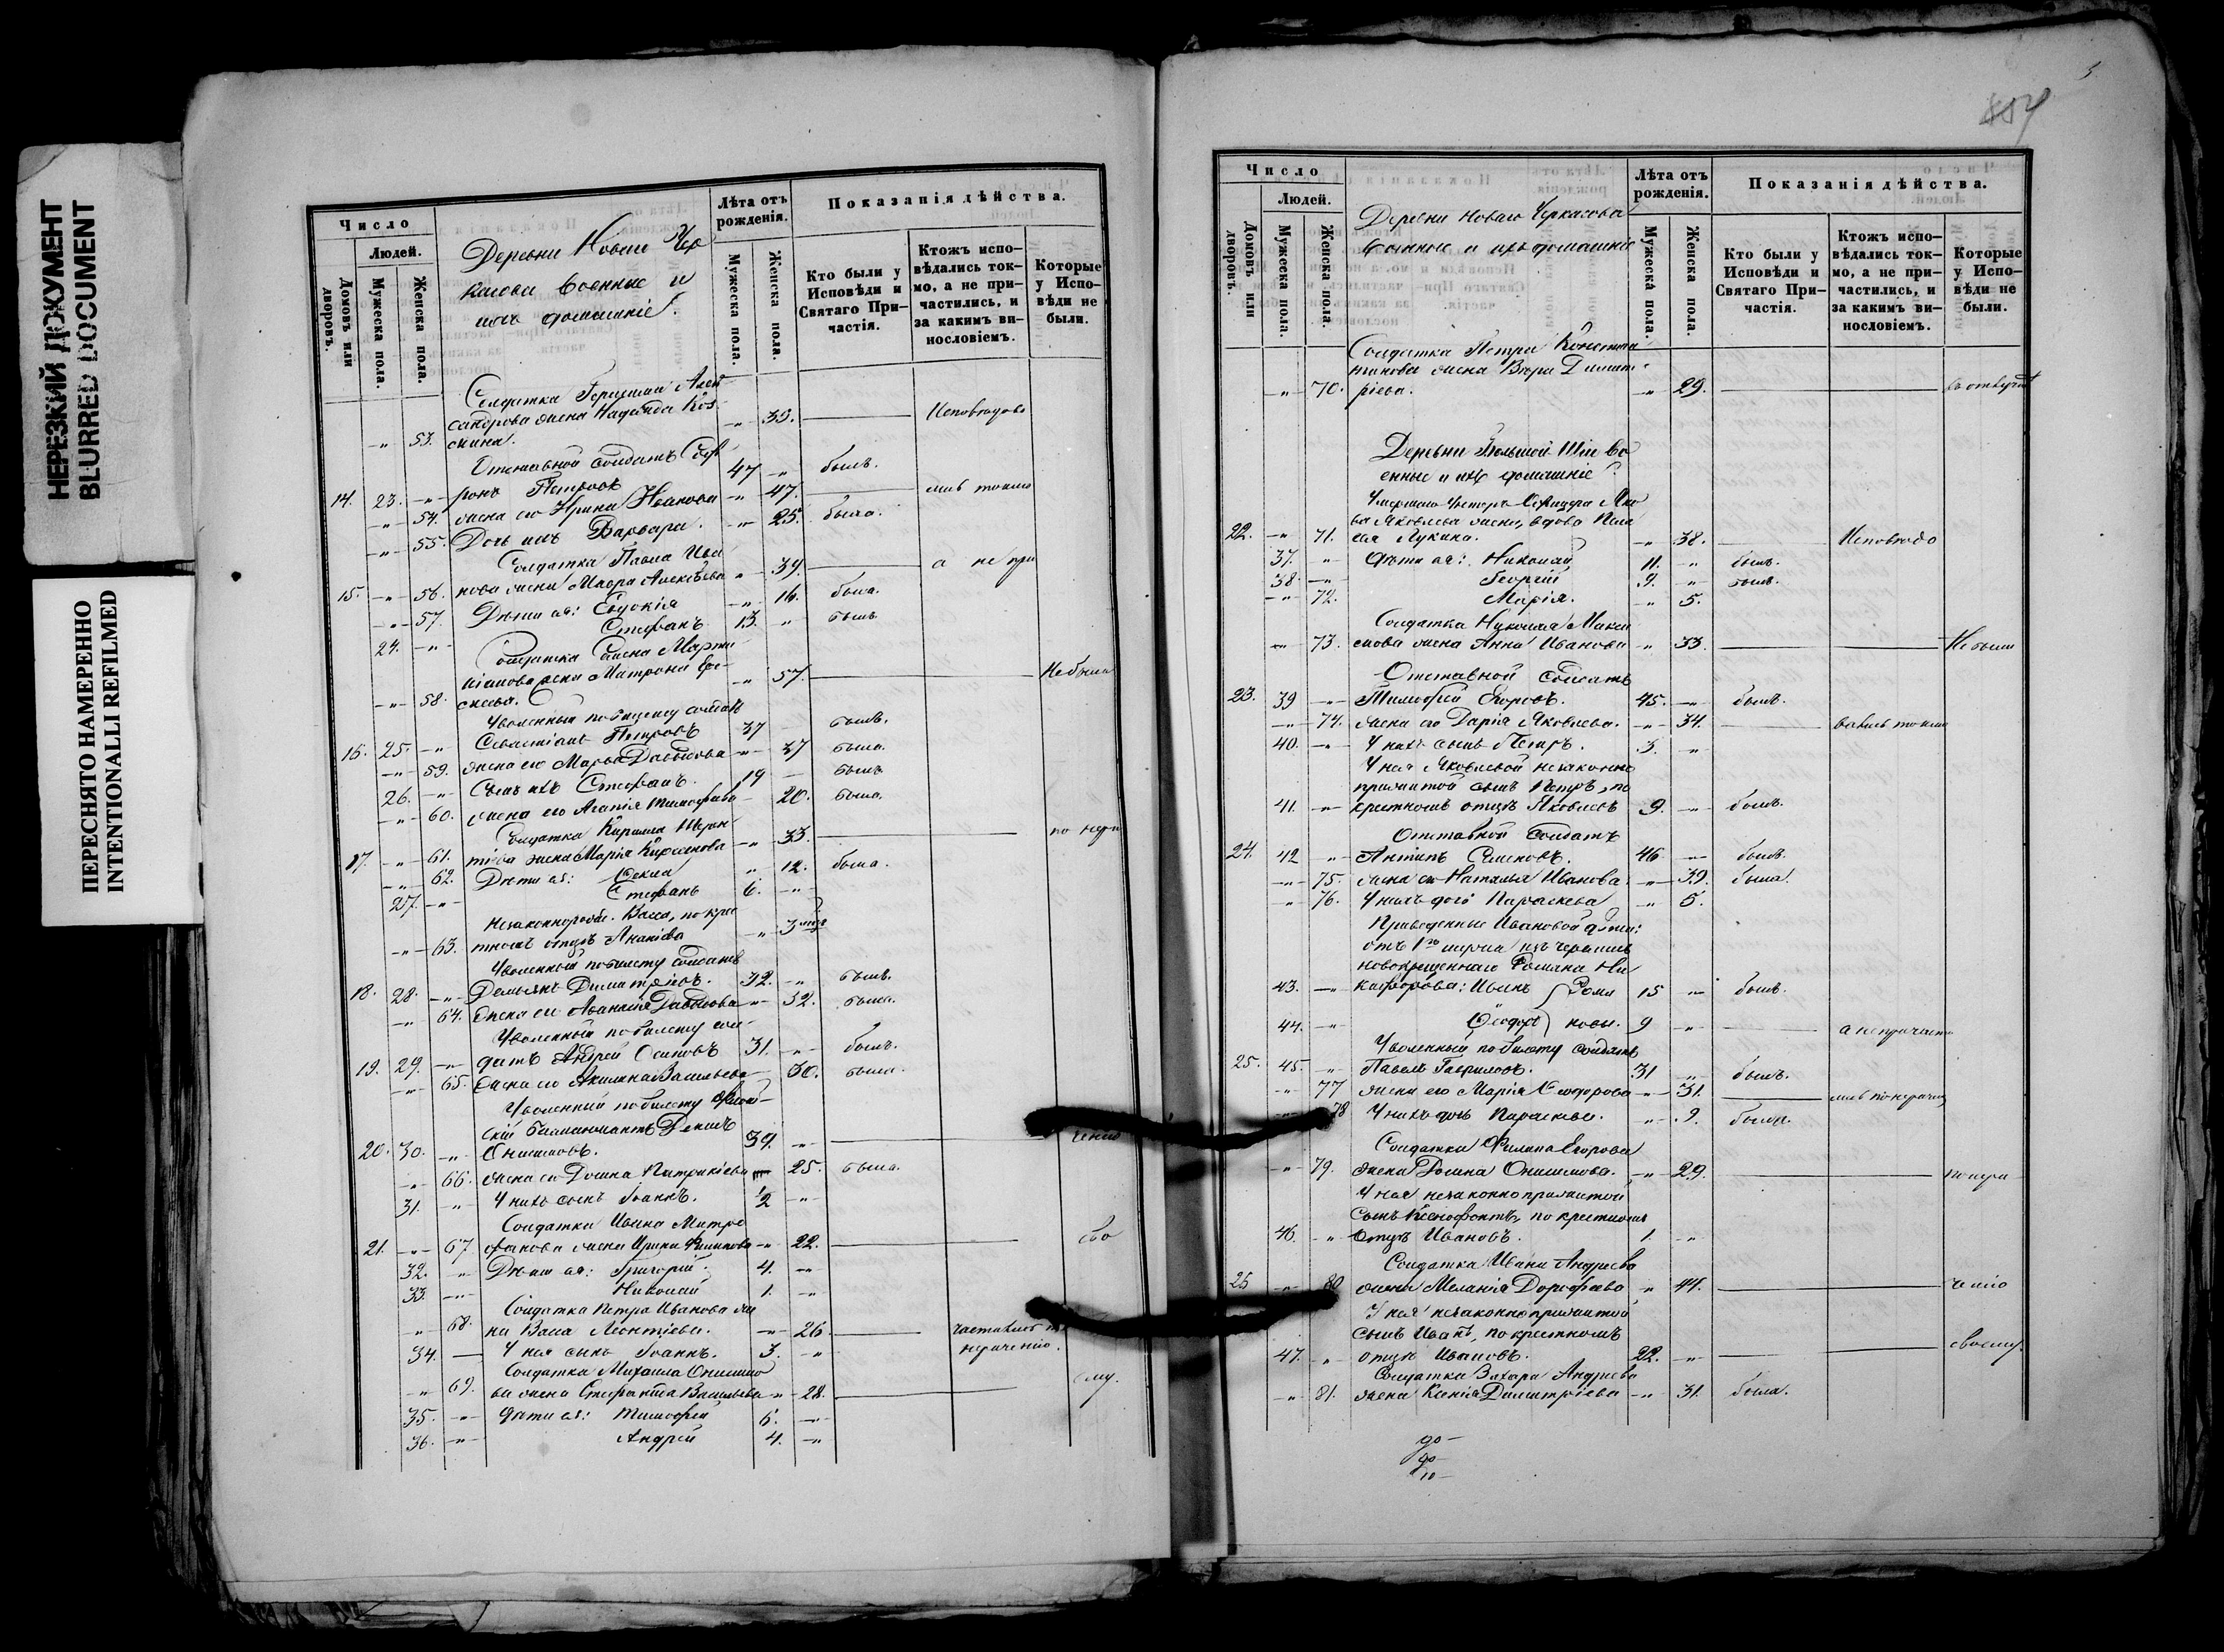 НЕРЕЗКИЙ ДОКУМЕНТ
BLURRED DOCUMENT
ПЕРЕСНЯТО НАМЕРЕННО
INTENTIONALLI REFILMED
Число
Людей.
Домовъ или дворовъ.
Мужеска пола.
Женска пола.
Деревни Новой Чер
касовы Военные и
ихъ домашніе.
Лѣта отъ рожденія.
Мужеска пола.
Женска пола.
Показанія дѣйства.
Кто были у Исповѣди и Святаго Причастія.
Ктожъ исповѣдались токмо, а не причастились, и за какимъ винословіемъ.
Которые у Исповѣди не были.
Солдатка
сандрова жена Надежда Коз
53. мина. 33. Исповѣдова
Отставной солдатъ Соф
14. 23. ронъ Петровъ 47 былъ.
54. жена его Ирина Иванова 47. лись токмо
55. Дочь ихъ Варвара. 25. была.
Солдатка Павла Ива
15. 56. нова жена Мавра Алексѣева 39. а не при
57. Дѣти ея: Евдокія 16. была.
24. Стефанъ 13. былъ
Солдатка
58. 57. Не была
Уволенный по билету солдатъ
16. 25. Севастіанъ Петровъ 37 былъ.
59. жена его Марѳа Давыдова 37 была.
26. Сынъ ихъ Стефанъ. 19 былъ
60. жена его Агапія Тимофѣева 20. была.
Солдатка Кирилла Терен
17. 61. тіева жена Марія Кириллова 33. по нера
62. Дѣти ея: Ѳекла 12. была.
27. Стефанъ 6.
Незаконнорожд. Васса, по кре
63. стномъ отцѣ Ананіева 3
Уволенный по билету солдатъ
18. 28. Демьянъ Димитріевъ. 32. былъ.
64. жена его Аѳанасія Давыдова 32. была.
Уволенный по билету сол
19. 29. датъ Андрей Осиповъ 31. былъ.
65. жена его Акилина Васильева 30. была.
Уволенный по билету
20. 30. Онисимовъ. 39. ченію
66. жена его Домна Патрикіева 25. была.
31. У нихъ сынъ Іоаннъ. 1/2
Солдатка Ивана Митро
21. 67 фанова жена Ирина Филипова 22. сво
32. Дѣти ея: Григорій. 4.
33. Николай 1.
Солдатка Петра Иванова же
68. на Васса Леонтіева. 26. частились по
34. У нея сынъ Іоаннъ. 3. нераченію.
Солдатка Михаила Онисимо
69. ва жена Стефанида Васильева 28. ему.
35. Дѣти ея: Тимофей 6.
36. Андрей 4.
Число
Людей.
Домовъ или дворовъ.
Мужеска пола.
Женска пола.
Деревни Новаго Черкасова
Военные и ихъ домашніе
Лѣта отъ рожденія.
Мужеска пола.
Женска пола.
Показанія дѣйства.
Кто были у Исповѣди и Святаго Причастія.
Ктожъ исповѣдались токмо, а не причастились, и за какимъ винословіемъ.
Которые у Исповѣди не были.
Солдатка Петра Констан
тинова жена Вѣра Димит
70. ріева. 29. въ отлучкѣ
Деревни Большой Шіи во
енные и ихъ домашніе
Умершаго Унтеръ Офицера Яко
ва Яковлева жена, вдова Пела
22. 71. гея Лукина. 38. Исповѣдо
37. Дѣти ея: Николай 11. былъ.
38. Георгій 9. былъ.
72. Марія. 5.
Солдатка Николая Макси
73. мова жена Анна Иванова 33. Не были
Отставной солдатъ
23. 39 Тимофей Егоровъ. 45. былъ.
74. жена его Дарія Яковлева. 34. вались токмо
40. У нихъ сынъ Петръ. 3.
У нея Яковлевой незаконно
прижитой сынъ Петръ, по
41. крестномъ отцѣ Яковлевъ 9. былъ.
Отставной солдатъ
24. 42 Антипъ Семеновъ. 46. былъ.
75. жена его Наталья Иванова. 39. была.
76. У нихъ дочь Параскева 5.
Приведенные Ивановой дѣти:
отъ 1го мужа изъ черемисъ
новокрещеннаго Романа Ни
43. кифорова: Иванъ Рома 15 былъ.
44. Ѳеодоръ новы. 9 а не причасти
Уволенный по билету солдатъ
25. 45. Павелъ Гавриловъ. 31 былъ.
77 жена его Марія Ѳеодорова 31. лись по нерачен
78 У нихъ дочь Параскева. 9. была.
Солдатка Филипа Егорова
79. жена Домна Онисимова. 29. по нера
У нея незаконно прижитой
сынъ Ксенофонтъ, по крестномъ
46. отцѣ Ивановъ. 1.
Солдатка Ивана Андреева
25 80 жена Меланія Дорофѣева 44. ченію
У нея незаконно прижитой
сынъ Иванъ, по крестномъ
47. отцѣ Ивановъ. 22. своему.
Солдатка Захара Андреева
81. жена Ксенія Димитріева 31. была.